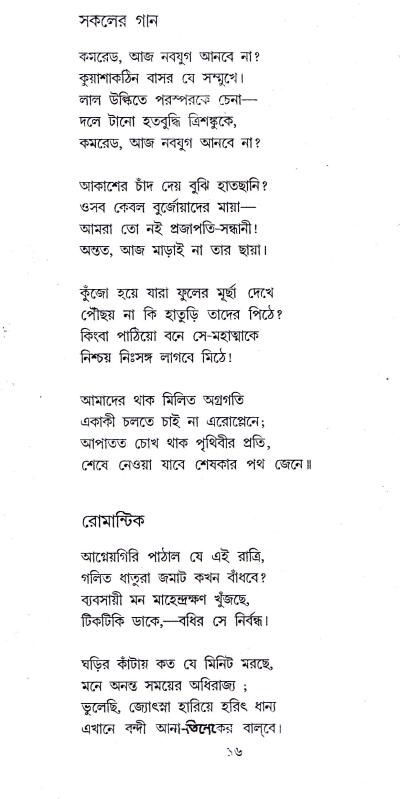 সকলের গান
কমরেড, আজ নবযুগ আনবে না?
কুয়াশাকঠিন বাসর যে সম্মুখে।
লাল উল্কিতে পরস্পরকে চেনা—
দলে টানো হতবুদ্ধি ত্রিশঙ্কুকে,
কমরেড, আজ নবযুগ আনবে না?
আকাশের চাঁদ দেয় বুঝি হাতছানি?
ওসব কেবল বুর্জোয়াদের মায়া—
আমরা তো নই প্রজাপতি-সন্ধানী!
অন্তত, আজ মাড়াই না তার ছায়া।
কুঁজো হয়ে যারা ফুলের মূর্ছা দেখে
পৌঁছয় না কি হাতুড়ি তাদের পিঠে?
কিংবা পাঠিয়ো বনে সে-মহাত্মাকে
নিশ্চয় নিঃসঙ্গ লাগবে মিঠে!
আমাদের থাক মিলিত অগ্রগতি
একাকী চলতে চাই না এরোপ্লেনে;
আপাতত চোখ থাক পৃথিবীর প্রতি,
শেষে নেওয়া যাবে শেষকার পথ জেনে॥
রোমান্টিক
আগ্নেয়গিরি পাঠাল যে এই রাত্রি,
গলিত ধাতুরা জমাট কখন বাঁধবে?
ব্যবসায়ী মন মাহেন্দ্রক্ষণ খুঁজছে,
টিকটিকি ডাকে,—বধির সে নির্বন্ধ।
ঘড়ির কাঁটায় কত যে মিনিট মরছে,
মনে অনন্ত সময়ের অধিরাজ্য ;
ভুলেছি, জ্যোৎস্না হারিয়ে হরিৎ ধান্য
এখানে বন্দী আনা-তিনেকের বাল্‌বে।
১৬